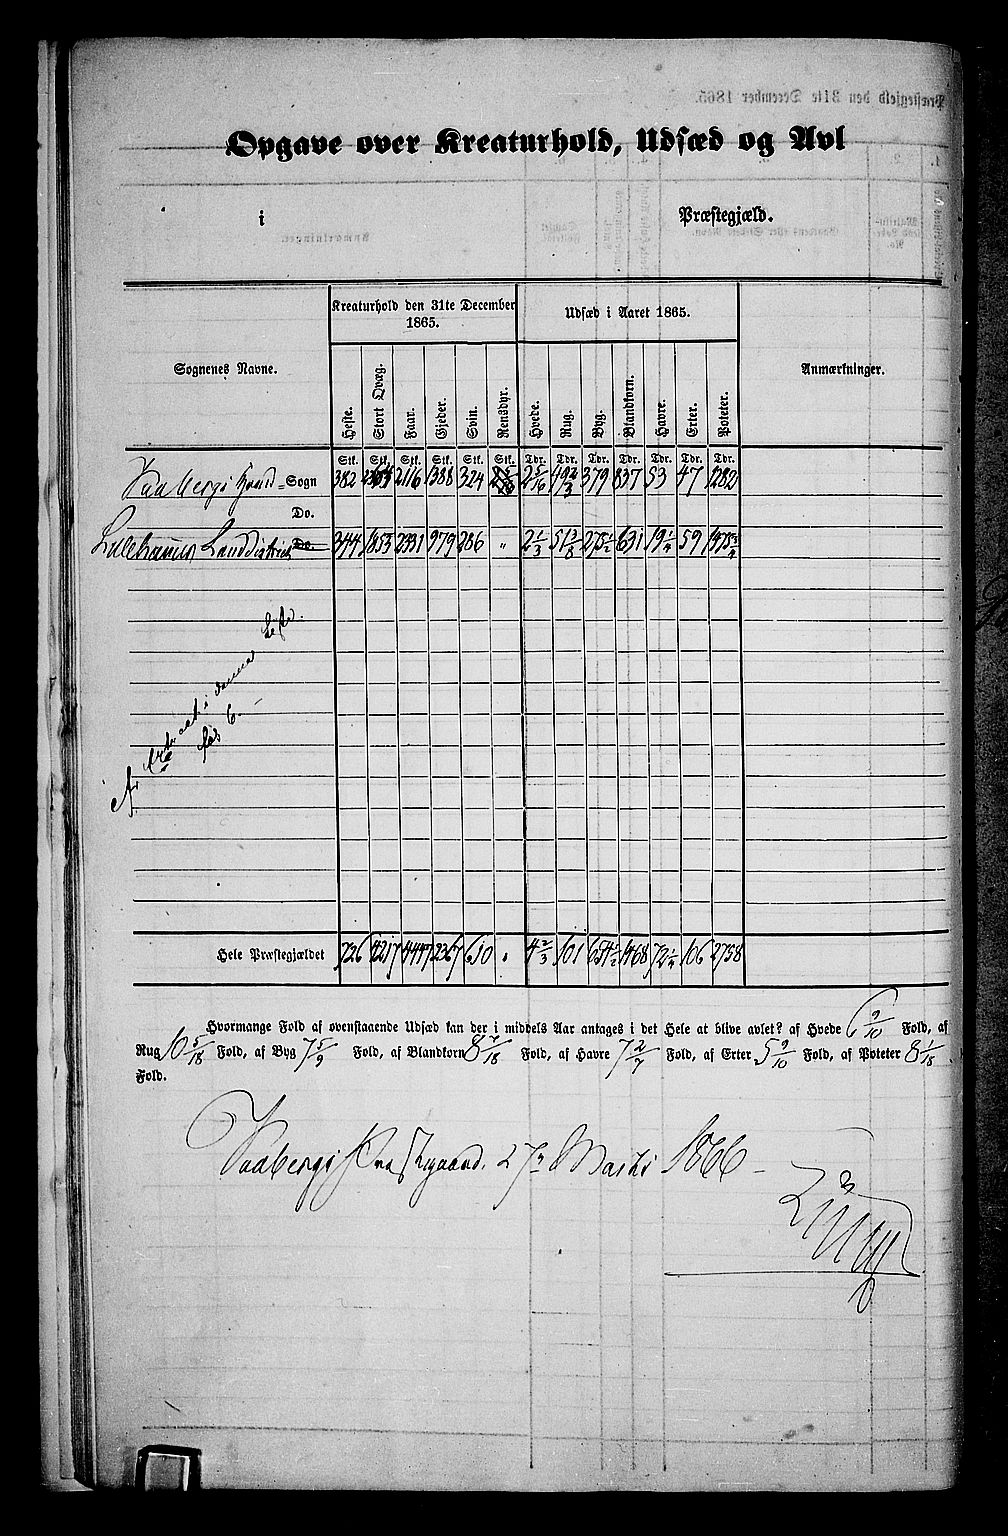 Opgave over Kreaturhold, Udsæd og Avl
i Præstegjæld.
Sognenes Navne. Kreaturhold den 31te December 1865. Udsæd i Aaret 1865. Anmærkninger.
Heste. Stort Qvæg. Faar. Gjeder. Svin. Rensdyr. Hvede. Rug. Byg. Blandkorn. Havre. Erter. Poteter.
Stk. Stk. Stk. Stk. Stk. Stk. Tdr. Tdr. Tdr. Tdr. Tdr. Tdr. Tdr.
Faabergs Hoved-Sogn 382 2364 2116 1388 324 2 5/16 49 2/3 379 837 53 47 1282
Do.
Lillehammer Landdistrict Do. 344 1853 2331 979 286 " 2 1/3 51 1/3 275 1/2 631 19 1/4 59 1475 3/4
i denne Liste.
6.
Hele Præstegjældet 726 4217 4447 2367 610 " 4 2/3 101 654 1/2 1468 72 1/4 106 2758
Hvormange Fold af ovenstaaende Udsæd kan der i middels Aar antages i det Hele at blive avlet? af Hvede 6 9/10 Fold, af
Rug 10 5/18 Fold, af Byg 7 5/9 Fold, af Blandkorn 8 7/18 Fold, af Havre 7 2/7 Fold, af Erter 5 9/10 Fold, af Poteter 8 1/18
Fold.
Faabergs Præstegaard. 27 Marts 1866